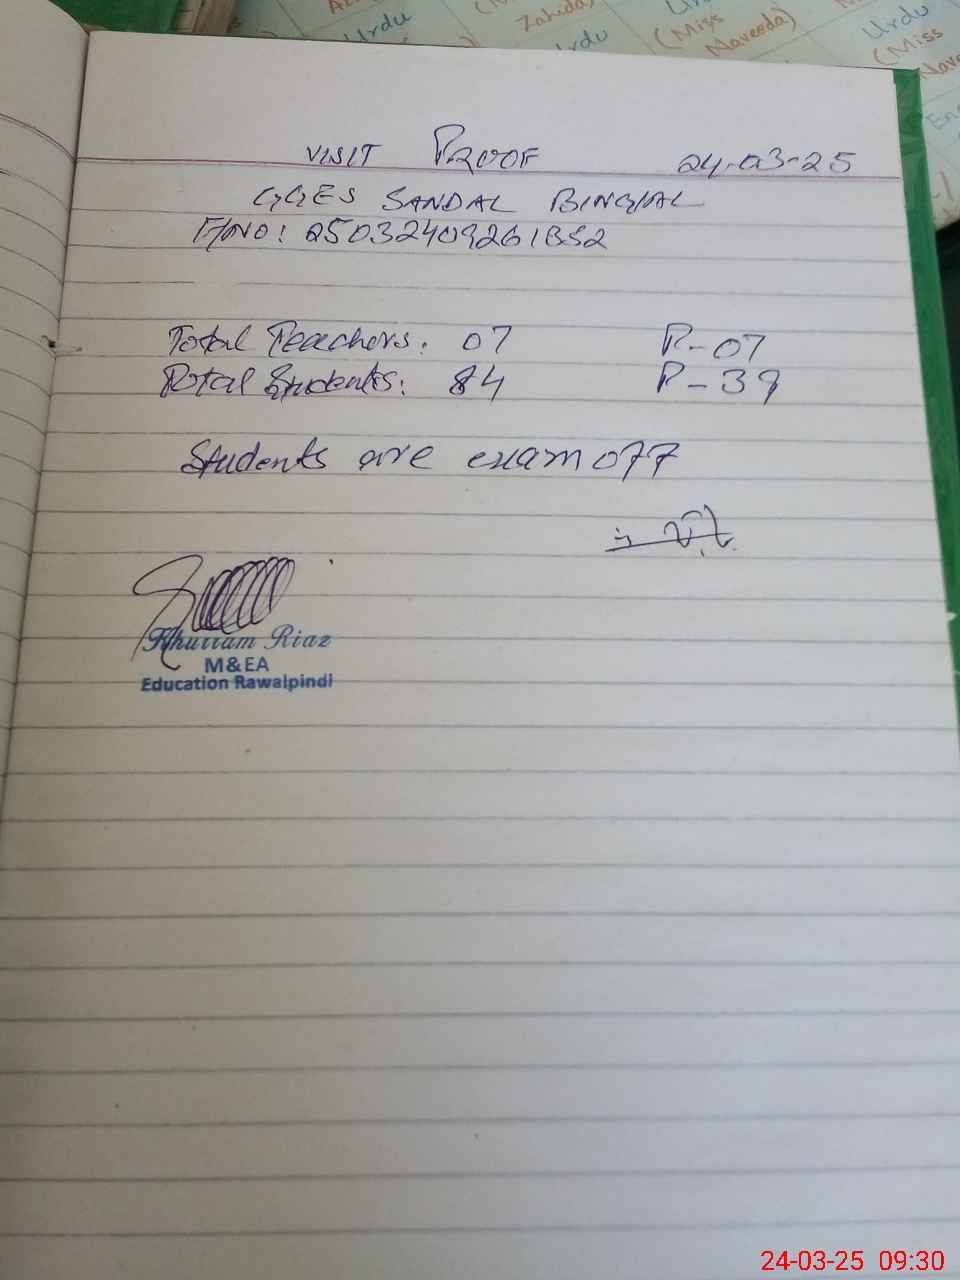 Urdu
Zahida)
Urdu
(Miss
Naveeda)
Urdu
(Miss
VISIT PROOF 24-03-25
GGES SANDAL BINGIAL
F/NO: 25032409261BS2
Total Teachers: 07 P-07
Total Students: 84 P-39
Students are exam off
Khurram Riaz
M&EA
Education Rawalpindi
24-03-25 09:30